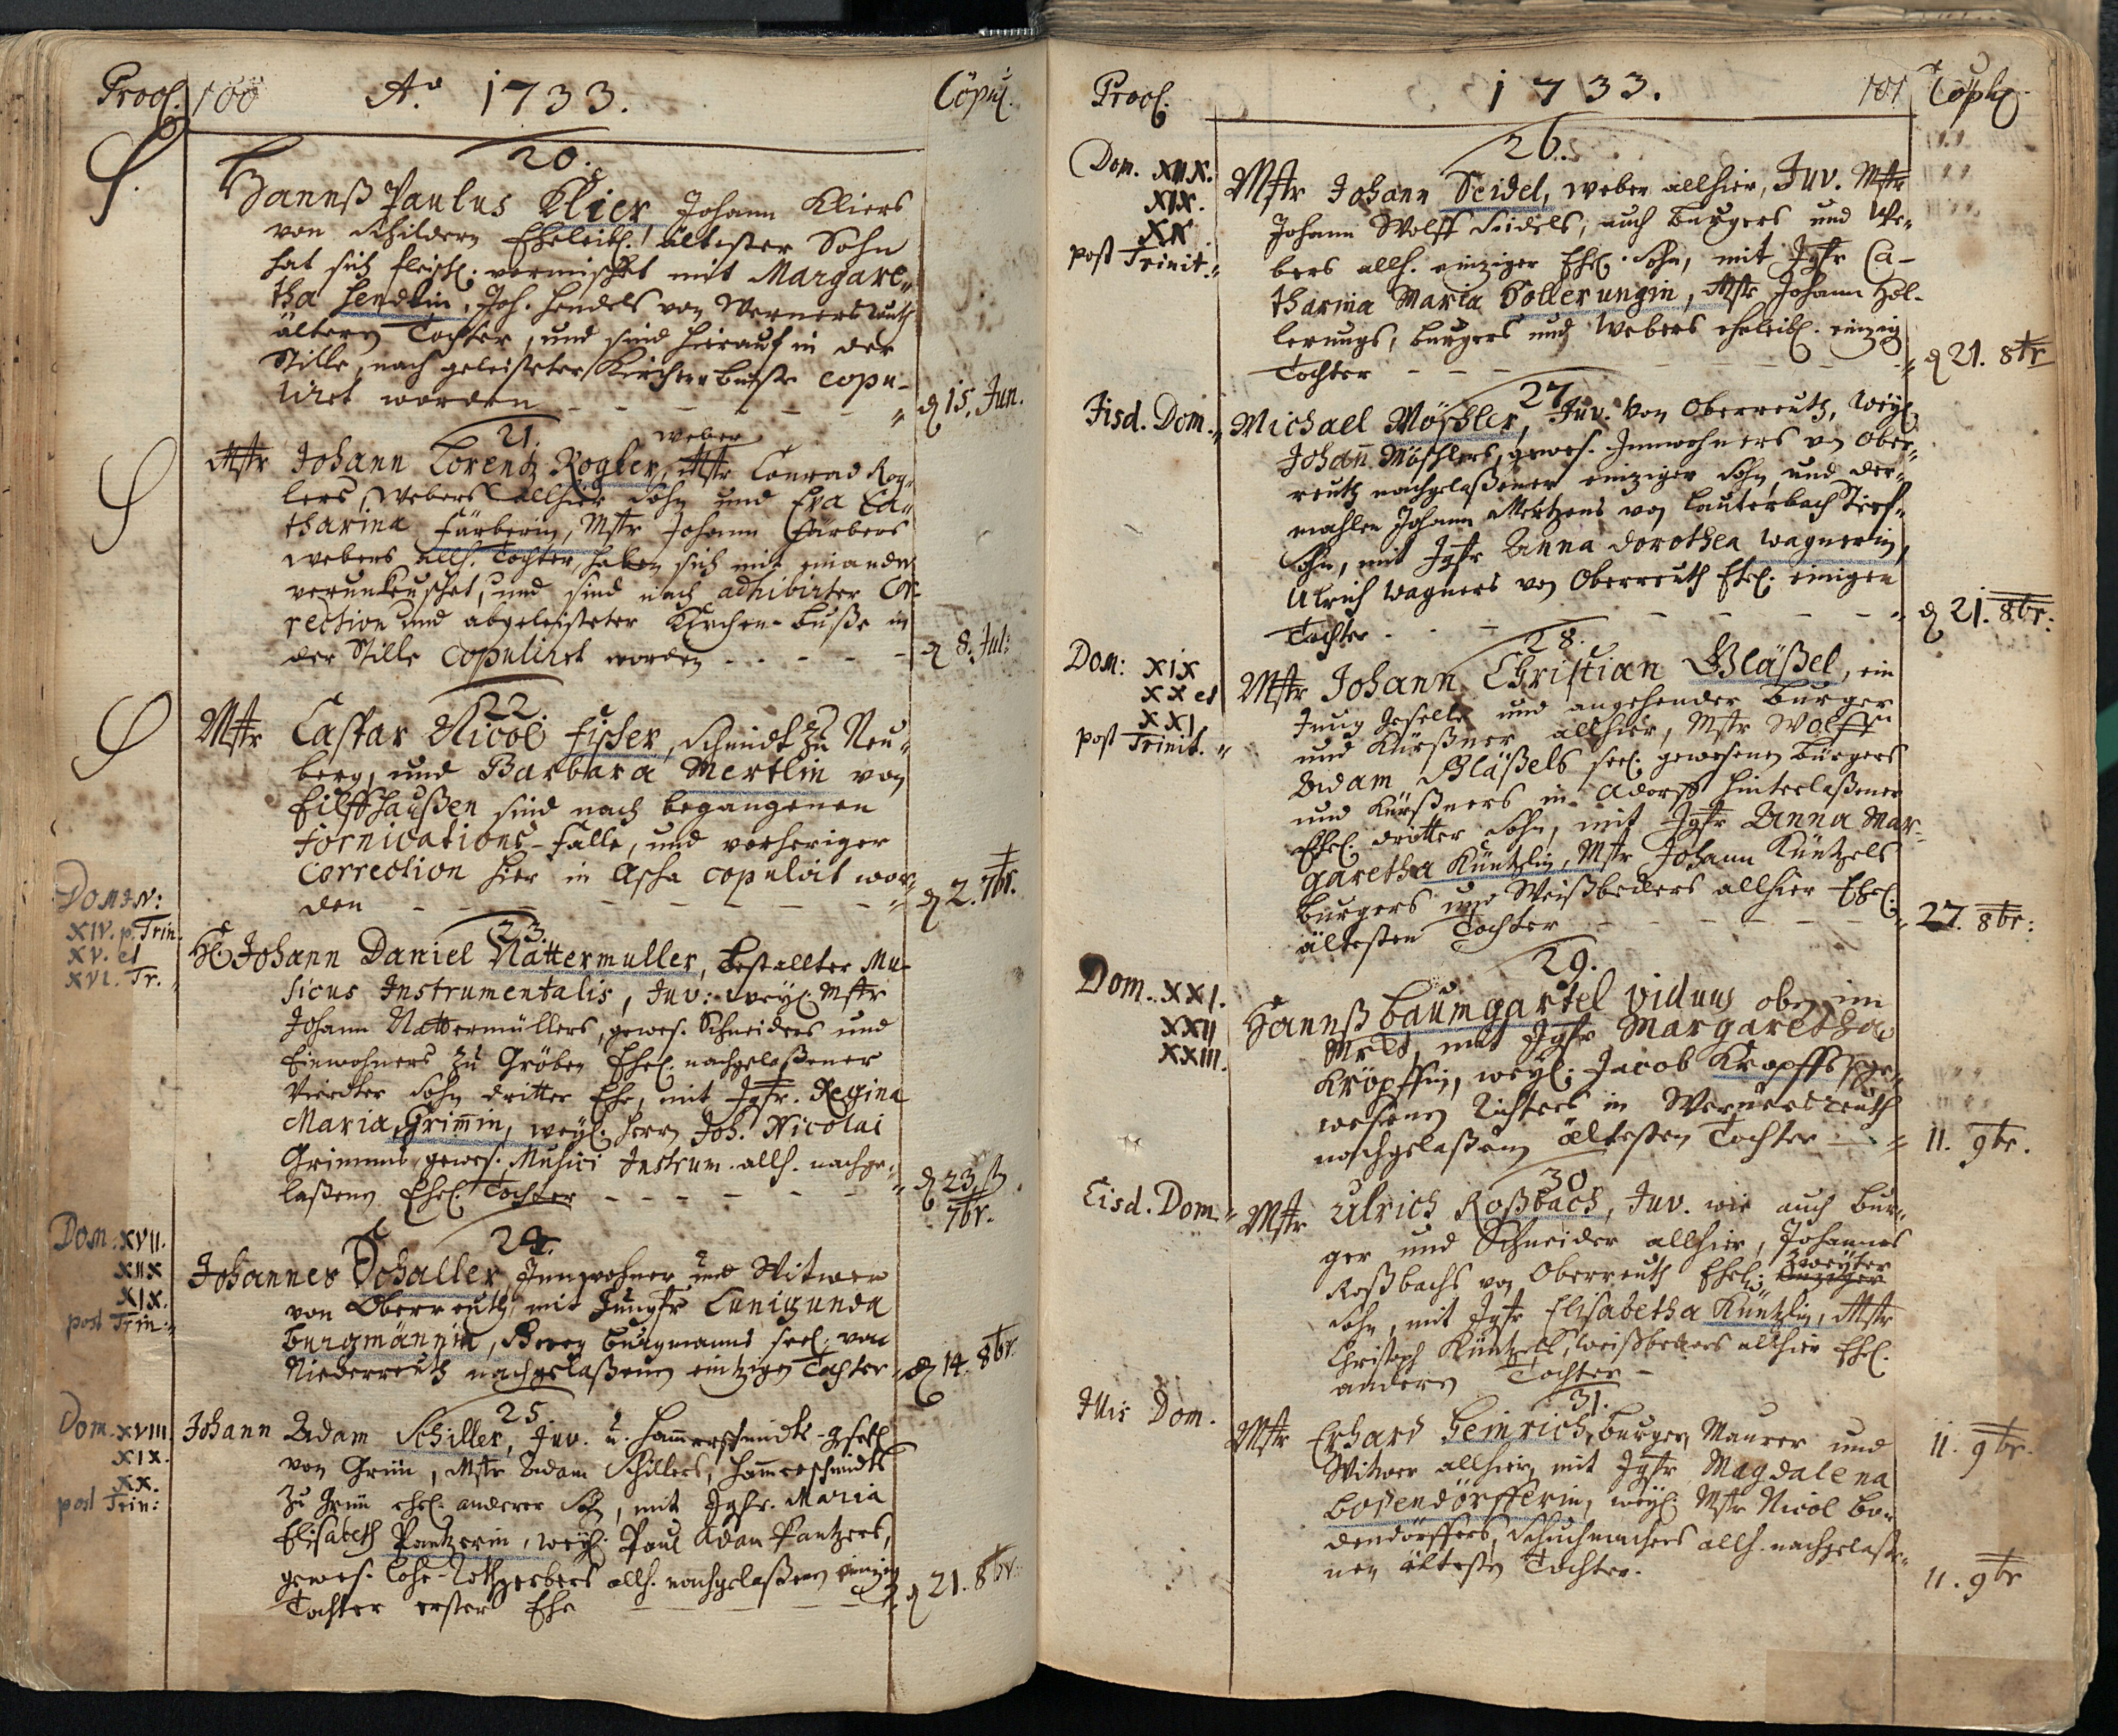 Procl. 100 Ao. 1733. Copul.
20.
Hannß Paulus Klier Johann Kliers
von Schildern Eheleibl. ältester Sohn
hat sich fleischl. vermischet mit Margare„
tha Hendlin, Joh. Hendels von Wernersreuth
ältern Tochter, und sind hierauf in der
Stille, nach geleisteter Kirchen Buße copu-
liret worden - - - - - „ d 15. Jun.
21.
weber
Mstr Johann Lorentz Rogler, Mstr Conrad Rog„
lers, Webers allhier Sohn und Eva Ca„
tharina Färberin, Mstr Johann Färbers
Webers allh. Tochter, haben sich mit einander
verunkeuschet, und sind nach adhibirter Cor-
rection und abgeleisteter Kirchen-Buße in
der Stille copuliret worden - - - - - d 8. Jul:
22.
Mstr Caspar Nicol Fischer, Schmidt zu Neu„
berg, und Barbara Mertlin von
Eilffhaußen sind nach begangenen
Fornications-Falle, und vorheriger
Correction hier in Ascha copulirt wor„
den - - - - - - „ d 2. 7br.
Domin:
XIV. p. Trin.
XV. et
XVI. Tr. „
23.
H. Johann Daniel Nattermuller, bestallter Mu-
sicus Instrumentalis, Juv: weyl. Mstr
Johann Nattermüllers, gewes. Schneiders und
Einwohners zu Gröben Ehel. nachgelaßener
Vierdter Sohn dritter Ehe, mit Jgfr. Regina
Maria Grim̄in, weyl. Herrn Joh. Nicolai
Grimms gewes. Musici Instrum. allh. nachge„
laßenen Ehel. Tochter - - - - - „ d 23.
7br.
Dom. XVII.
XIIX
XIX.
post Trin. „
24.
Johannes Schaller, Innwohner und Witwer
von Oberreuth, mit Jungfr Cunigunda
Burgmännin, Georg Burgmanns seel. von
Niederreuth nachgelaßenen eintzigen Tochter „ d 14. 8br.
Dom. XVIII
XIX.
XX.
post Trin:
25.
Johann Adam Schiller, Juv. u. Ham̄erschmidts-Gesell
von Grün, Mstr Adam Schillers, Ham̄erschmidts
zu Grün ehel. anderer Sohn, mit Jgfr. Maria
Elisabeth Pantzerin, weyl. Paul Adam Pantzers,
gewes. Loh-Rothgerbers allh. nachgelaßenen einzigen
Tochter erster Ehe - - - - - d 21. 8br.
Procl. 1733. 101 Copul.
26.
Dom. XIIX.
XIX.
XX
post Trinit. „
Mstr Johann Seidel, Weber allhier, Juv. Mstr
Johann Wolff Seidels, auch Burgers und We„
bers allh. einziger Ehel. Sohn, mit Jgfr Ca-
tharina Maria Hollerungin, Mstr Johann Hol-
lerungs, Burgers und Webers eheleibl. einzig
Tochter - - - - - - „ d 21. 8br
27.
Eisd. Dom. „ Michael Möschler, Juv. von Oberreuth, weyl.
Johan̄ Möschlers, gewes. Innwohners von Ober„
reuth nachgelaßener einziger Sohn und der„
mahlen Johann Mertzens von Lauterbach Stief„
Sohn, mit Jgfr Anna Dorothea Wagnerin,
Ulrich Wagners von Oberreuth Ehel. einigen
Tochter - - - - - „ d 21. 8br:
28.
Dom: XIX
XX et
XXI
post Trinit. „
Mstr Johann Christian Gläßel, ein
Jung Geselle und angehender Burger
und Kürßner allhier, Mstr Wolff
Adam Gläßels seel. gewesenen Bürgers
und Kürßners in Adorff hinterlaßener
Ehel. dritter Sohn, mit Jgfr Anna Mar-
garetha Küntzlin, Mstr Johann Küntzels
Burgers und Weißbeckers allhier Ehel.
ältesten Tochter - - - - „ 27. 8br:
29.
Dom. XXI.
XXII
XXIII.
Hannß Baumgärtel viduus oben im
Marck, mit Jgfr Margaretha
Kröpffin, weyl. Jacob Kropffs ge„
wesenen Richters in Wernersreuth
nachgelaßenen ältesten Tochter - „ 11. 9br.
30
Eisd. Dom. „ Mstr Ulrich Roßbach, Juv. wie auch Bur„
ger und Schneider allhier, Johannes
zweyter
Roßbachs von Oberreuth Ehel. einziger
Sohn, mit Jgfr Elisabetha Küntzlin, Mstr
Christoph Küntzels, Weissbeckers allhier Ehel.
andern Tochter - 11. 9br.
31.
Illis Dom.
Mstr Erhard Heinrich, Burger, Maurer und
Witwer allhier, mit Jgfr Magdalena
Bodendörfferin, weyl. Mstr Nicol Bo„
dendörffers, Schuchmachers allh. nachgelaße„
nen ältesten Tochter. 11. 9br